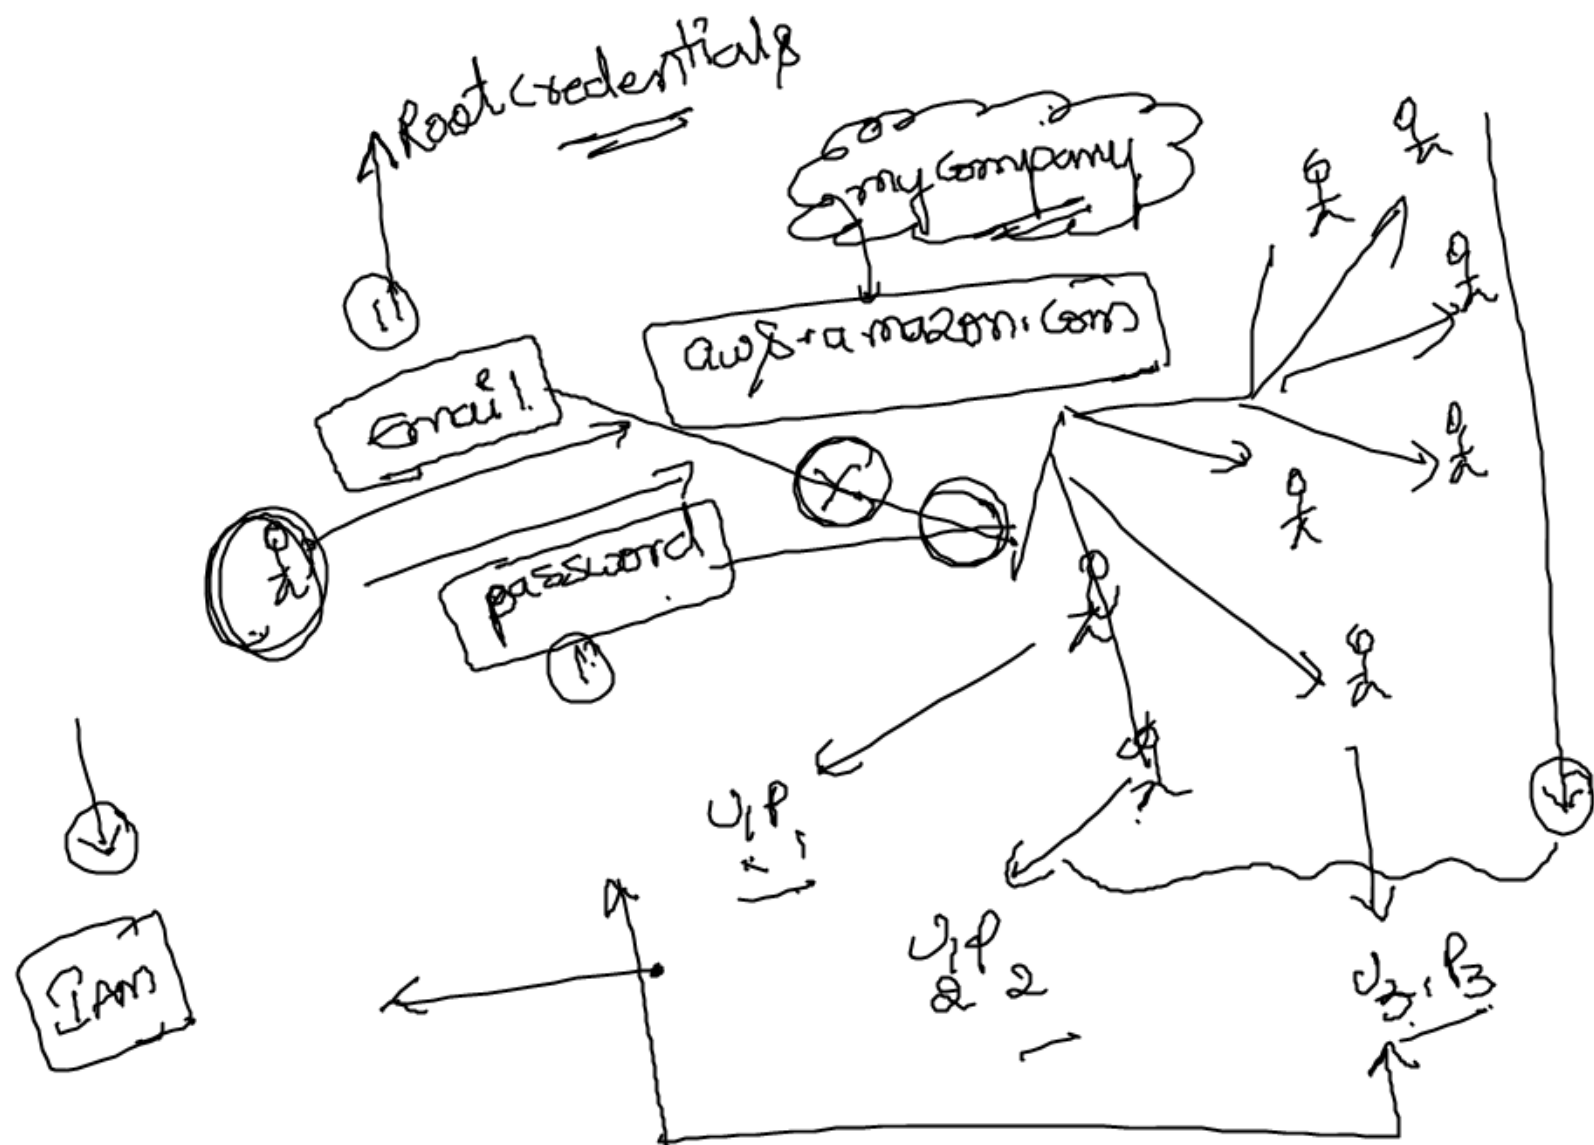 Root credentials
my company
aws.amazon.com
Email
password
U1P1
U2P2
U3,P3
IAM